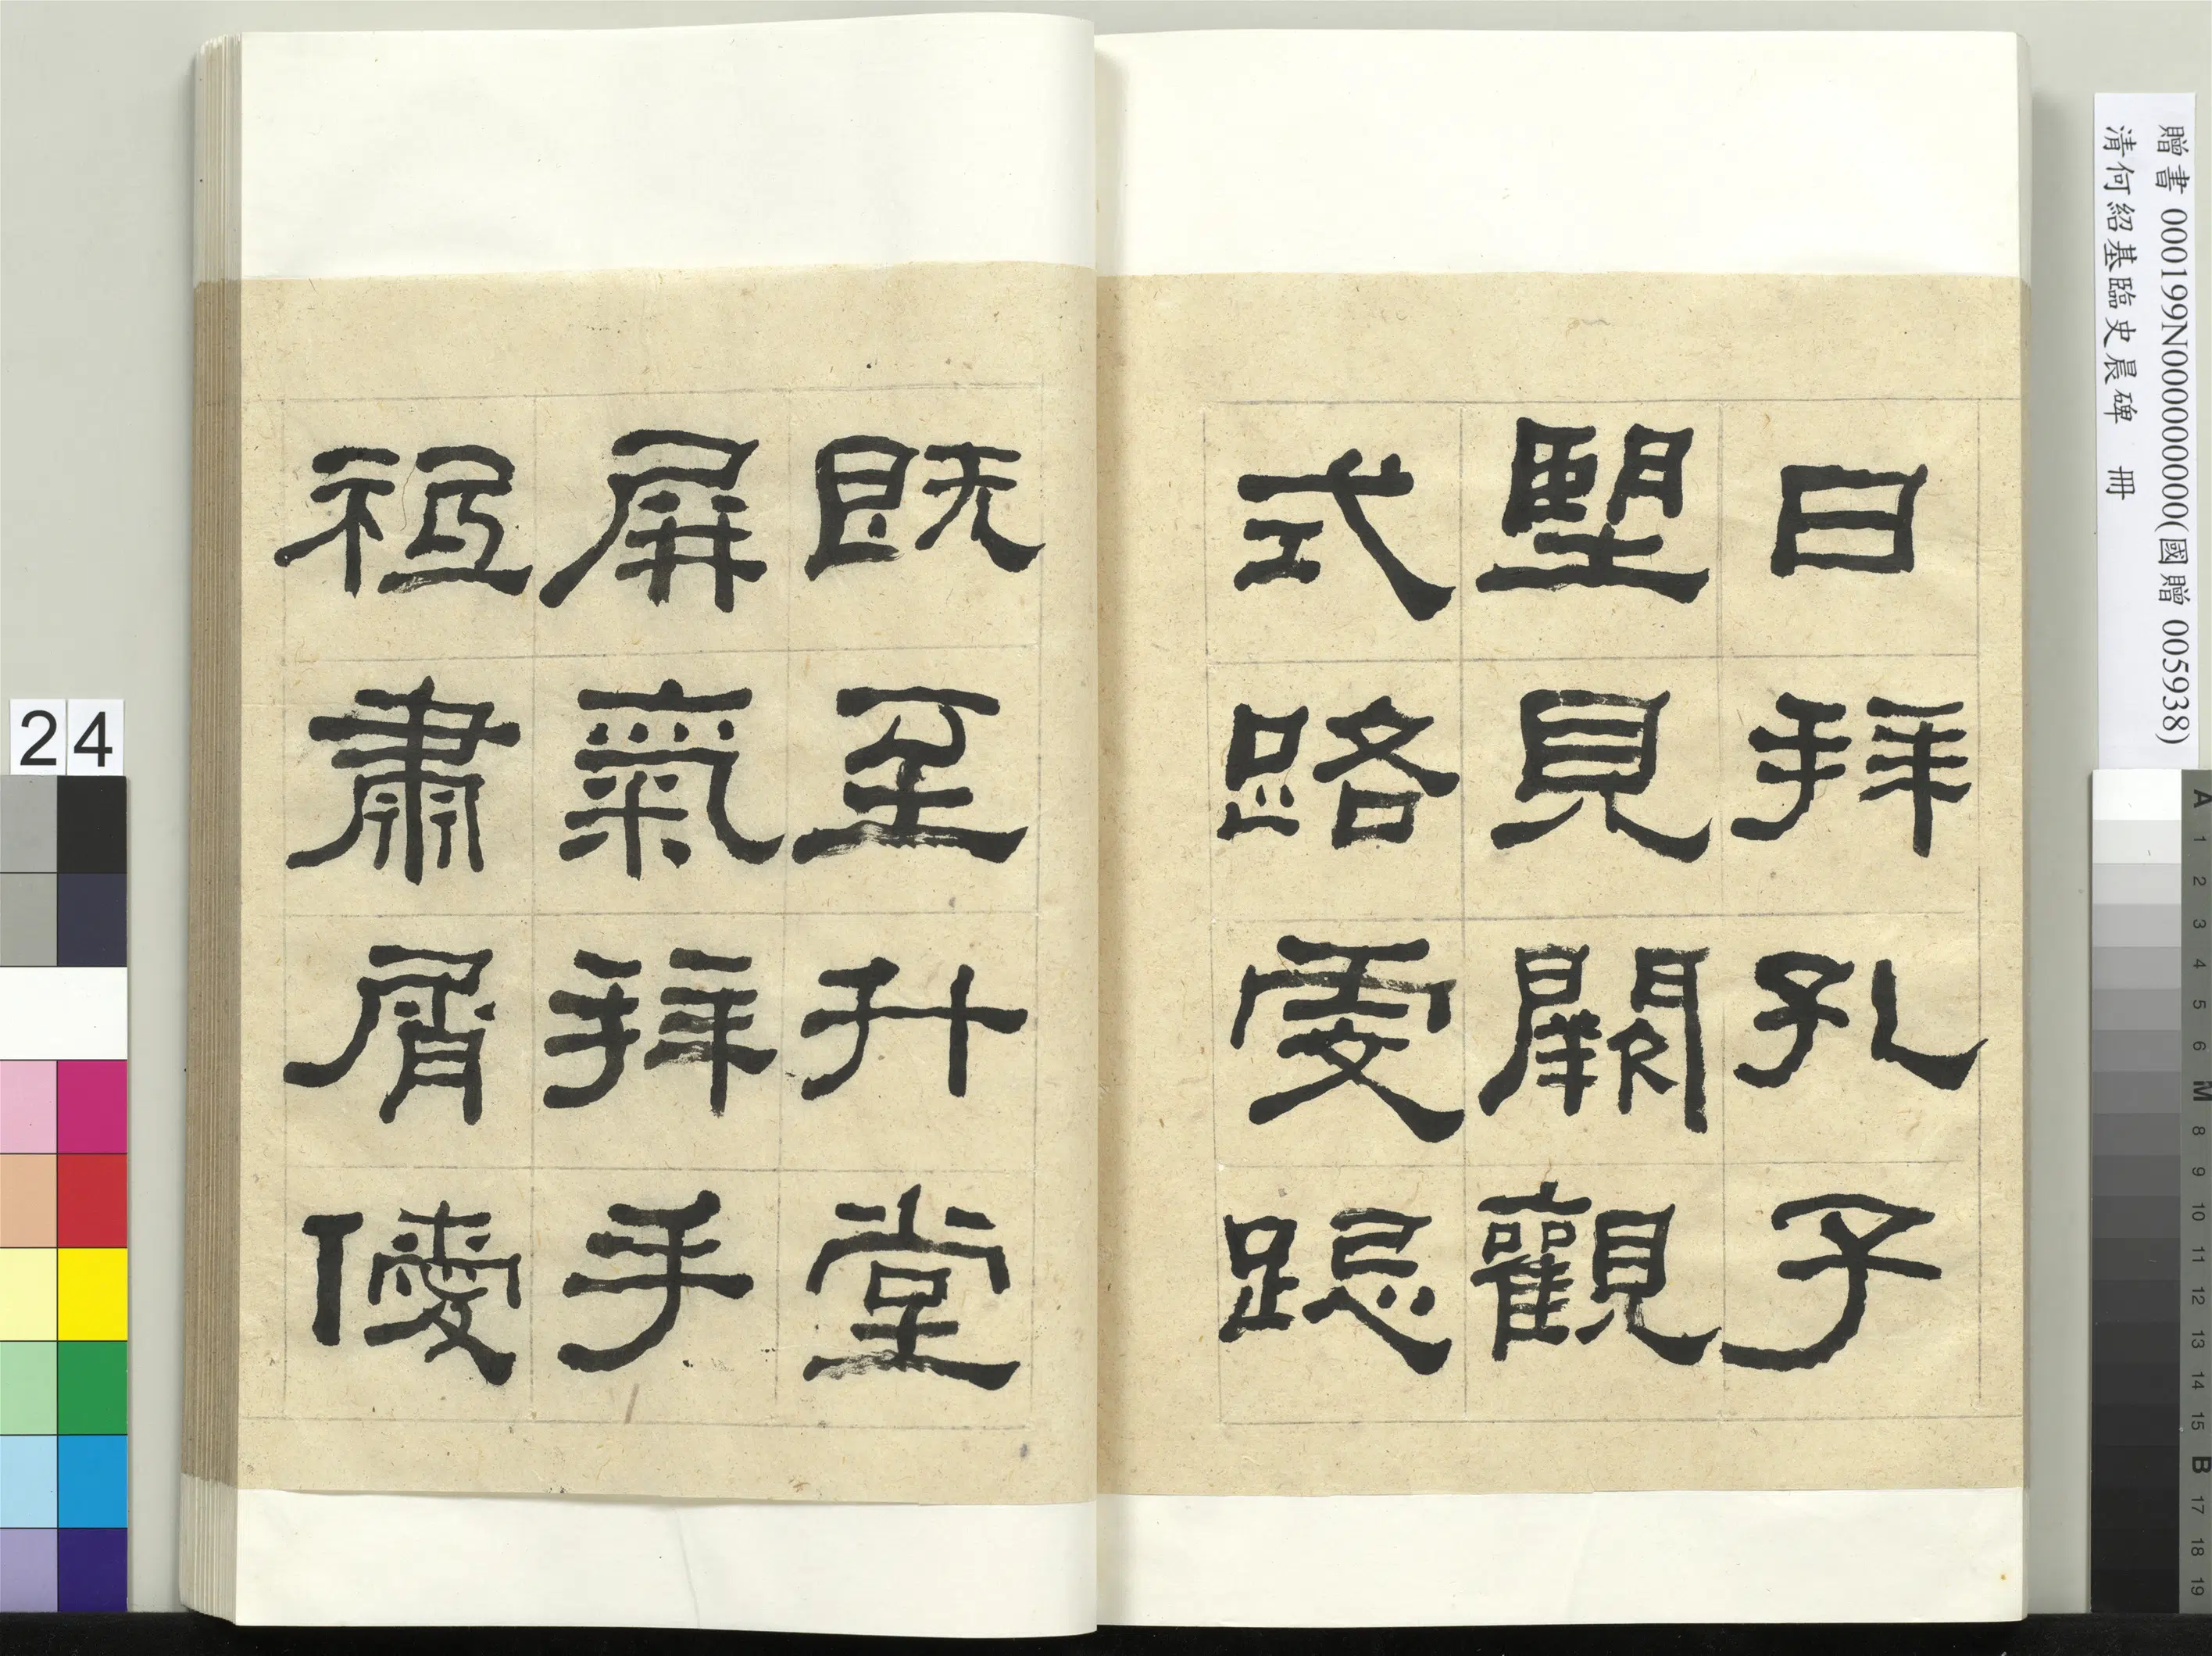 日拜孔子
朢見闕觀
式路虔跽
既至升堂
屏氣拜手
祗肅屑僾
贈書 000199N000000000(國贈 005938)
清何紹基臨史晨碑 冊
24
A 1 2 3 4 5 6 M 8 9 10 11 12 13 14 15 B 17 18 19